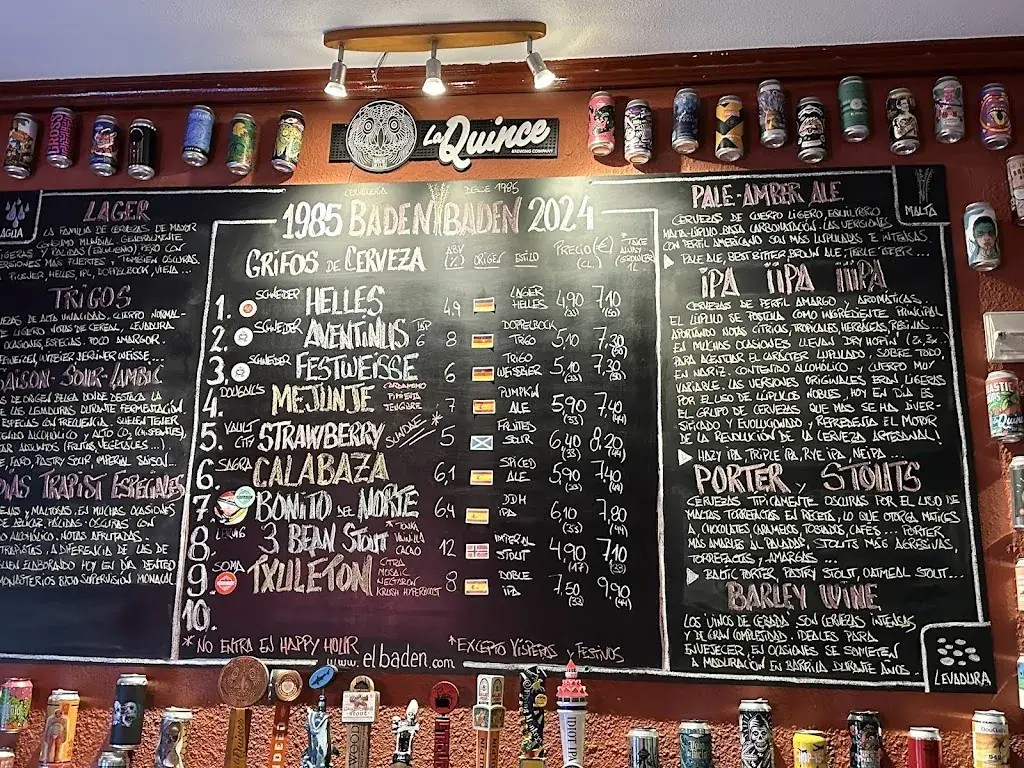 La Quince
BREWING COMPANY
CERVECERIA DESDE 1985
1985 BADEN BADEN 2024
GRIFOS DE CERVEZA ABV (%) ORIGEN ESTILO PRECIO (€) (CL) *TAKE AWAY (GROWLER) 1L
1. SCHNEIDER HELLES 4,9 LAGER HELLES 4,90 7,10
2. SCHNEIDER AVENTINUS TAP 6 8 DOPPELBOCK TRIGO 5,10 7,30
3. SCHNEIDER FESTWEISSE 6 TRIGO WEISSBIER 5,10 7,30
4. DOUGALL'S MEJUNJE CARDAMOMO PIMIENTA JENGIBRE 7 PUMPKIN ALE 5,90 7,40
5. VAULT CITY STRAWBERRY SUNDAE * 5 FRUITED SOUR 6,40 8,20
6. SAGRA CALABAZA 6,1 SPICED ALE 5,90 7,40
7. BONITO DEL NORTE 6,4 DDH IPA 6,10 7,80
8. LERVIG 3 BEAN STOUT * TONKA VAINILLA CACAO 12 IMPERIAL STOUT 4,90 7,10
9. SOMA TXULETON CITRA MOSAIC NECTARON KRUSH HYPERBOOST 8 DOBLE IPA 7,50 9,90
10.
*NO ENTRA EN HAPPY HOUR *EXCEPTO VÍSPERAS Y FESTIVOS
www.elbaden.com
AGUA
LAGER
LA FAMILIA DE CERVEZAS DE MAYOR
CONSUMO MUNDIAL. GENERALMENTE
LIGERAS Y PÁLIDAS (EQUILIBRIO) PERO CON
VERSIONES MÁS FUERTES Y TAMBIÉN OSCURAS.
PILSNER, HELLES, IPL, DOPPELBOCK, VIENA ...
TRIGOS
DE ALTA VINALIDAD. CUERPO NORMAL-
LIGERO. NOTAS DE CEREAL, LEVADURA
OCASIONES, ESPECIAS. POCO AMARGOR.
BERLINER WEISSE...
SAISON-SOUR-LAMBIC
DE ORIGEN BELGA DONDE DESTACA LA
LAS LEVADURAS DURANTE FERMENTACIÓN.
ESPECIAS CON FRECUENCIA. SUELEN TENER
ALCOHÓLICO Y ALTO CO2
(FRUTAS, VEGETALES...)
FARO, PASTRY SOUR, IMPERIAL SAISON...
TRAPIST ESPECIALES
Y MALTOSAS, EN MUCHAS OCASIONES
DE AZÚCAR. PÁLIDAS - OSCURAS CON
ALCOHÓLICO. NOTAS AFRUTADAS.
TRAPISTAS, A DIFERENCIA DE LAS DE
ELABORADO HOY EN DÍA DENTRO
MONASTERIOS BAJO SUPERVISIÓN MONACAL
PALE-AMBER ALE
MALTA
CERVEZAS DE CUERPO LIGERO, EQUILIBRIO
MALTA-LÚPULO. BAJA CARBONATACIÓN. LAS VERSIONES
CON PERFIL AMERICANO SON MÁS LUPULADAS E INTENSAS.
PALE ALE, BEST BITTER, BROWN ALE, TABLE BEER...
IPA IIPA IIIPA
CERVEZAS DE PERFIL AMARGO Y AROMÁTICAS.
EL LÚPULO SE POSTULA COMO INGREDIENTE PRINCIPAL
APORTANDO NOTAS CÍTRICAS, TROPICALES, HERBÁCEAS, RESINAS...
EN MUCHAS OCASIONES LLEVAN DRY HOPIN' (2x, 3x...)
PARA ACENTUAR EL CARÁCTER LUPULADO, SOBRE TODO,
EN NARIZ. CONTENIDO ALCOHÓLICO Y CUERPO MUY
VARIABLE. LAS VERSIONES ORIGINALES ERAN LIGERAS
POR EL USO DE LÚPULOS NOBLES, HOY EN DÍA ES
EL GRUPO DE CERVEZAS QUE MÁS SE HA DIVER-
SIFICADO Y EVOLUCIONADO Y REPRESENTA EL MOTOR
DE LA REVOLUCIÓN DE LA CERVEZA ARTESANAL!
HAZY IPA, TRIPLE IPA, RYE IPA, NEIPA...
PORTER Y STOUTS
CERVEZAS TÍPICAMENTE OSCURAS POR EL USO DE
MALTAS TORREFACTAS EN RECETA, LO QUE OTORGA MATICES
A CHOCOLATES, CARAMELOS, TOSTADOS, CAFÉS... PORTER
MÁS AMABLES AL PALADAR, STOUTS MÁS AGRESIVAS,
TORREFACTAS Y AMARGAS...
BALTIC PORTER, PASTRY STOUT, OATMEAL STOUT...
BARLEY WINE
LOS VINOS DE CEBADA SON CERVEZAS INTENSAS
Y DE GRAN COMPLEJIDAD. IDEALES PARA
ENVEJECER, EN OCASIONES SE SOMETEN
A MADURACIÓN EN BARRICA DURANTE AÑOS.
LEVADURA